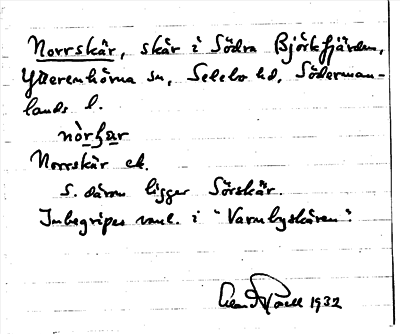 Norrskär, skär i Södra Björkfjärden,
Ytterenhörna sn, Selebo hd, Söderman-
lands l.
nòrʂar
Norrskär ek.
S. därom ligger Sörskär.
Inbegripes vanl. i "Varnbyskären".
1932